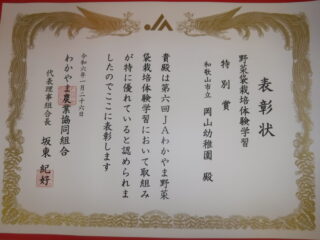 表彰状
野菜袋栽培体験学習
特別賞
和歌山市立 岡山幼稚園 殿
貴殿は第六回JAわかやま野菜
袋栽培体験学習において取組み
が特に優れていると認められま
したのでここに表彰します
令和六年一月二十六日
わかやま農業協同組合
代表理事組合長 坂東 紀好